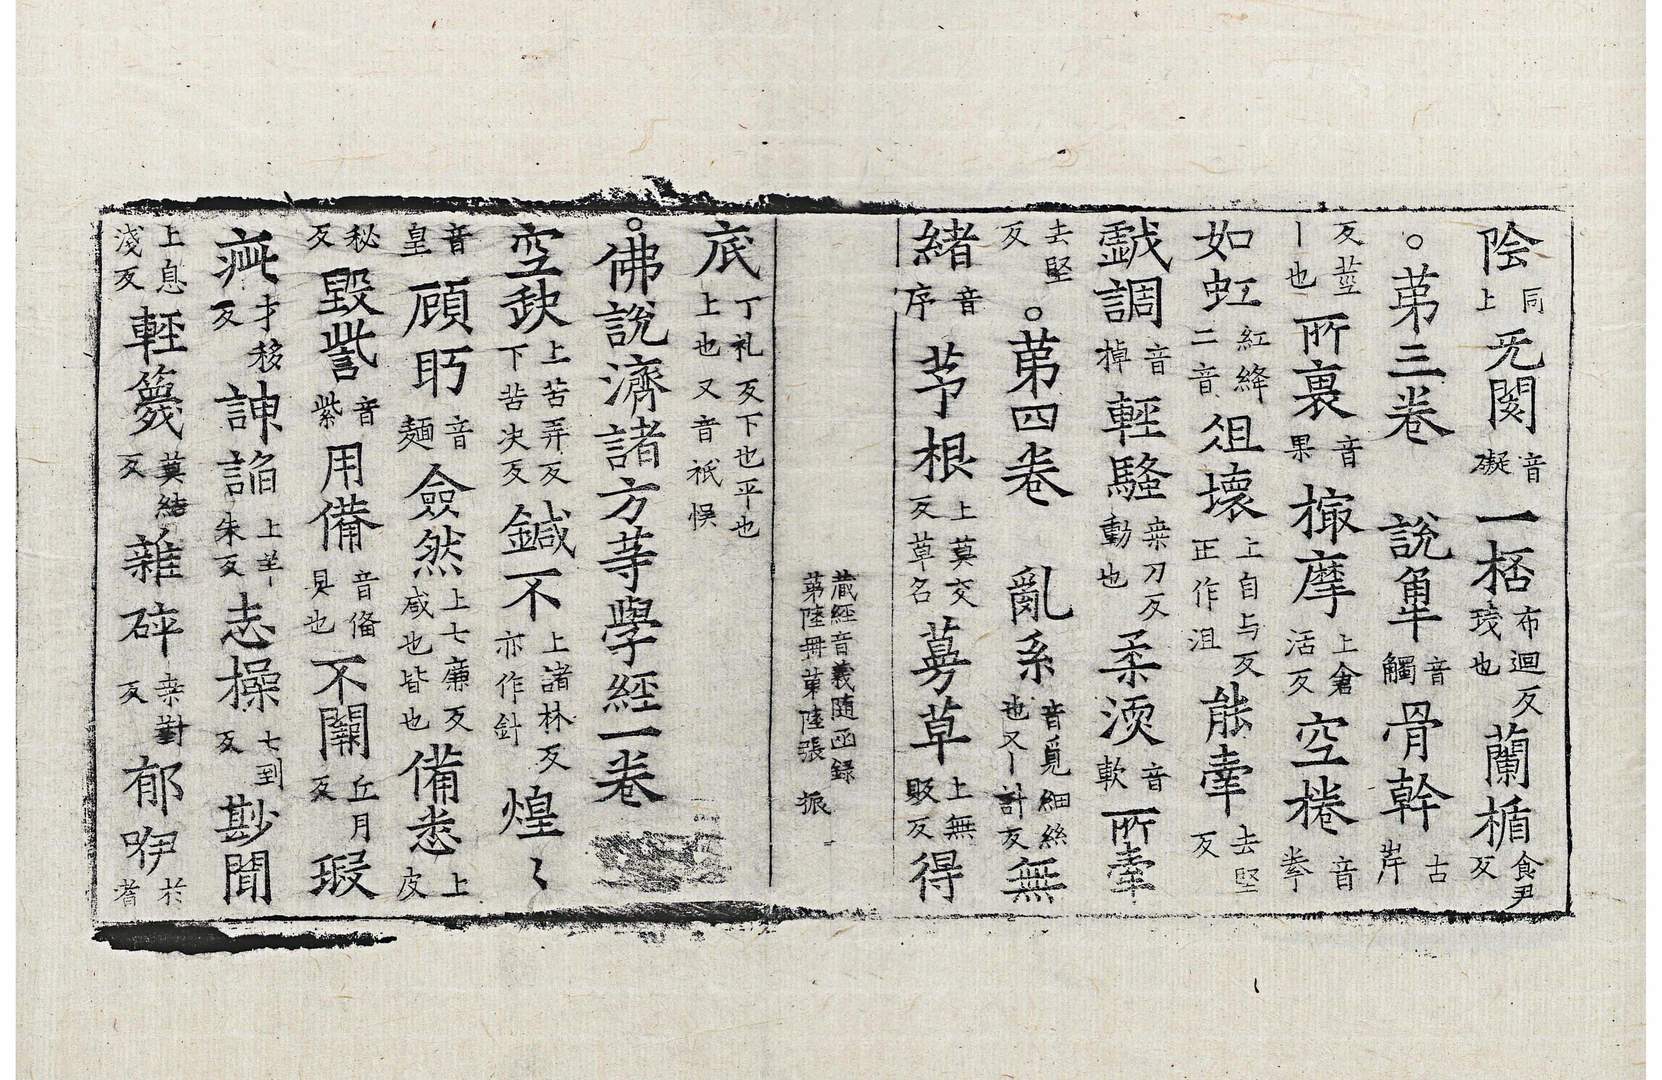 陰同上无閡音礙一栝布迴反㦮也蘭楯食尹反
。苐三卷 說𩋾音觸骨幹古岸
反莖丨也所裹音果撮摩上倉活反空棬音拳
如虹紅絳二音俎壞上自与反正作沮能牽去堅反
戲調音掉輕騷桒刀反動也柔渜音軟所牽
去堅反。苐四卷 亂系音覓細絲也又丨計反無
緒音序茅根上莫交反草名蒭草上無販反得
蔵經音義随函録
第陸冊第陸張 振
底丁礼反下也平也上也又音祇悮
。佛說濟諸方䓁學經一卷
空缺上苦弄反下苦决反鍼不上諸林反亦作針煌〻
音皇顧眄音麺僉然上七廉反咸也皆也備悉上皮
秘反毀訾音紫用備音俻具也不闚丘月反瑕
疵才移反諛諂上羊朱反志操七到反尠聞
上息淺反輕篾莫結反雜碎桒對反郁咿於耆